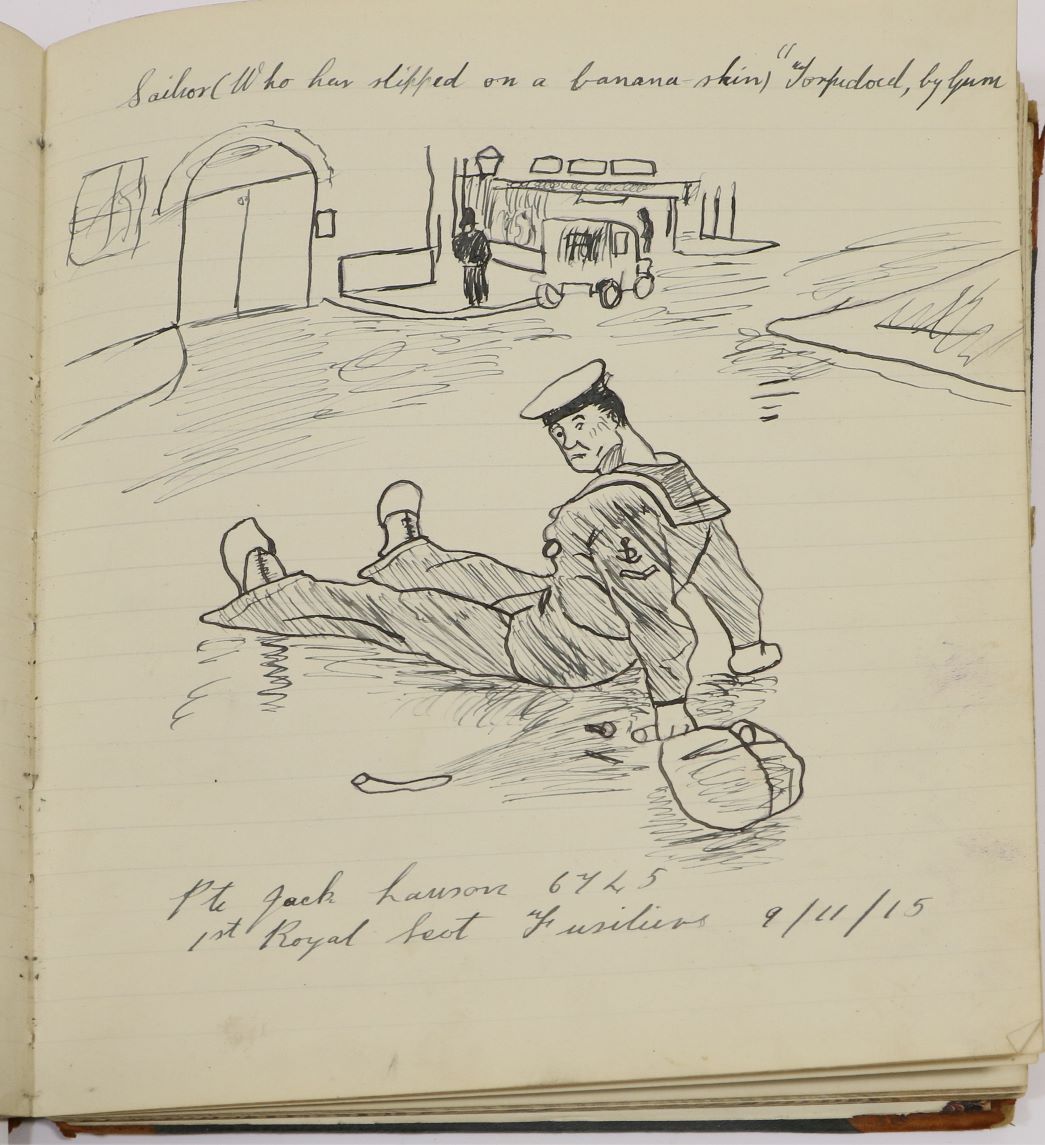 Sailor (Who has slipped on a banana-skin) "Torpedoed, by Gum
Pte Jack Lawson 6745
1st Royal Scot Fusiliers 9/11/15